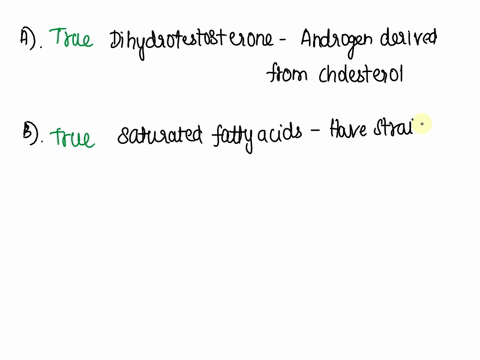 A). True Dihydrotestosterone - Androgen derived
from cholesterol
B). True Saturated fatty acids - Have strai